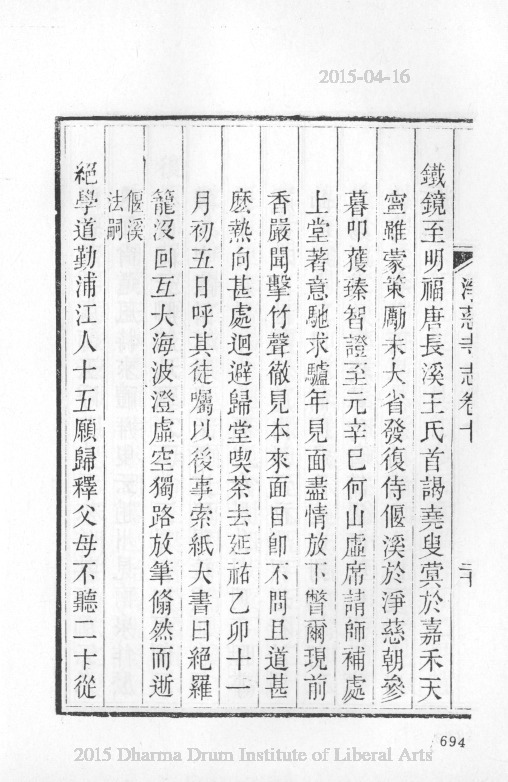 2015-04-16
淨慈寺志卷十
二十
鐵鏡至明福唐長溪王氏首謁堯叟蓂於嘉禾天
寧雖蒙策勵未大省發復侍偃溪於淨慈朝參
暮叩獲臻智證至元辛巳何山虛席請師補處
上堂著意馳求驢年見面盡情放下瞥爾現前
香嚴聞擊竹聲徹見本來面目即不問且道甚
麽熱向甚處迴避歸堂喫茶去延祐乙卯十一
月初五日呼其徒囑以後事索紙大書曰絕羅
籠沒回互大海波澄虛空獨路放筆翛然而逝
偃溪
法嗣
絕學道勤浦江人十五願歸釋父母不聽二十從
694
2015 Dharma Drum Institute of Liberal Arts